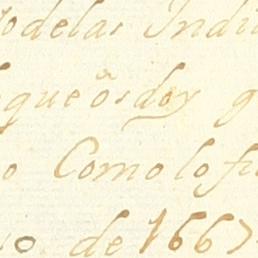 todelas Indi
que õs doy g
o Como lo fu
o de 1667